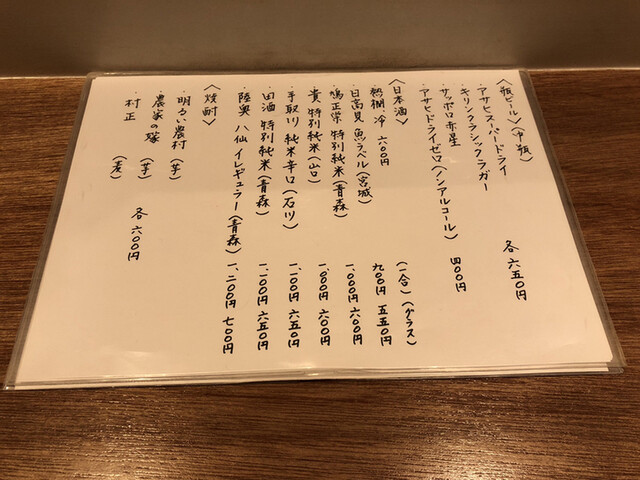 〈瓶ビール〉(中瓶)
・アサヒスーパードライ 各 六五〇円
・キリンクラシックラガー
・サッポロ赤星
・アサヒドライゼロ(ノンアルコール) 四〇〇円
〈日本酒〉 (一合)(グラス)
・熱燗 冷 六〇〇円
・日高見 魚ラベル(宮城) 九〇〇円 五五〇円
・鳩正宗 特別純米(青森) 一、〇〇〇円 六〇〇円
・貴 特別純米(山口) 一、〇〇〇円 六〇〇円
・手取川 純米辛口(石川) 一、一〇〇円 六五〇円
・田酒 特別純米(青森) 一、一〇〇円 六五〇円
・陸奥八仙 イレギュラー(青森) 一、二〇〇円 七〇〇円
〈焼酎〉
・明るい農村 (芋)
・農家の嫁 (芋)
・村正 (麦) 各 六〇〇円